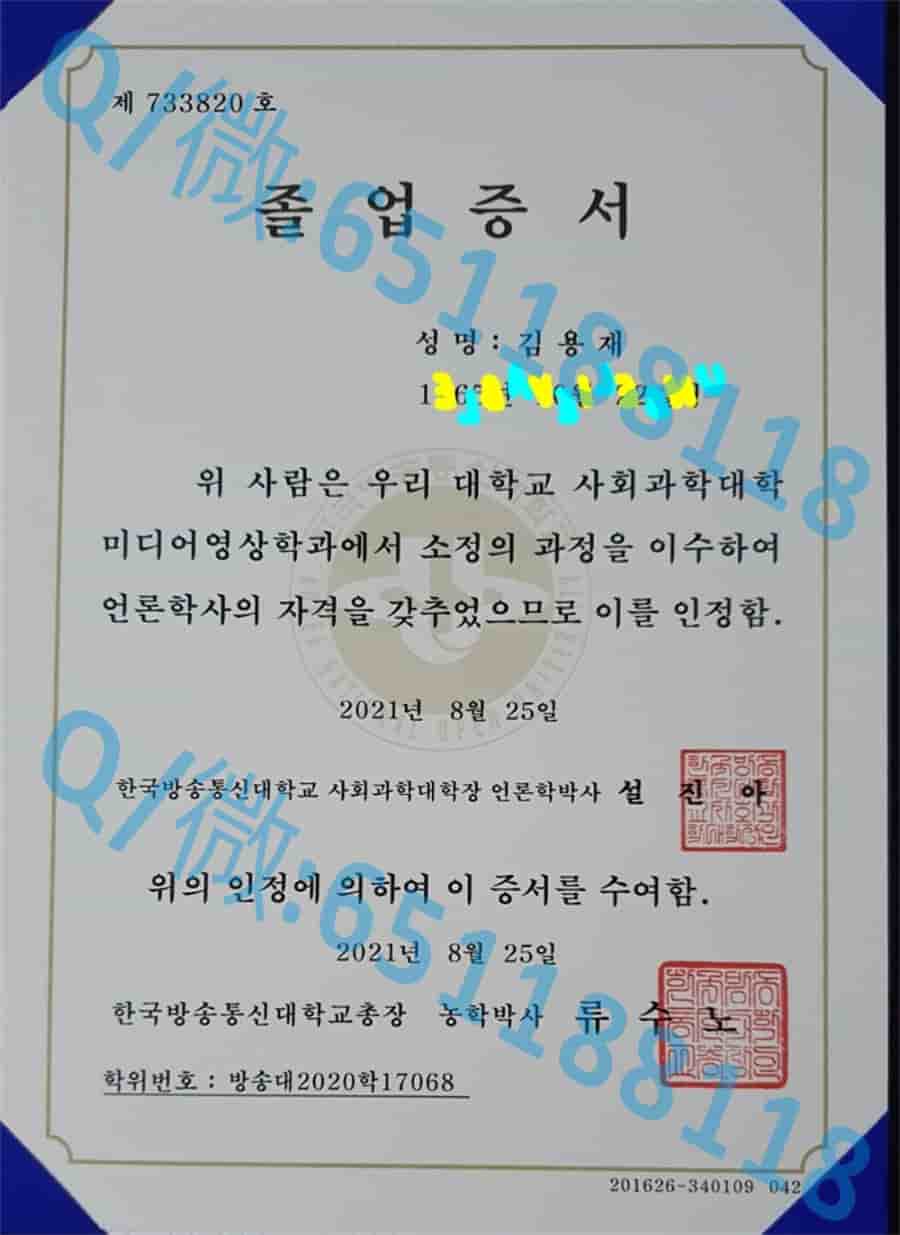 제 733820 호
졸 업 증 서
성 명 : 김 용 재
위 사람은 우리 대학교 사회과학대학
미디어영상학과에서 소정의 과정을 이수하여
언론학사의 자격을 갖추었으므로 이를 인정함.
2021년 8월 25일
한국방송통신대학교 사회과학대학장 언론학박사 설 진 아
위의 인정에 의하여 이 증서를 수여함.
2021년 8월 25일
한국방송통신대학교총장 농학박사 류 수 노
학위번호 : 방송대2020학17068
201626-340109 042
Q/微:651188118
Q/微:651188118